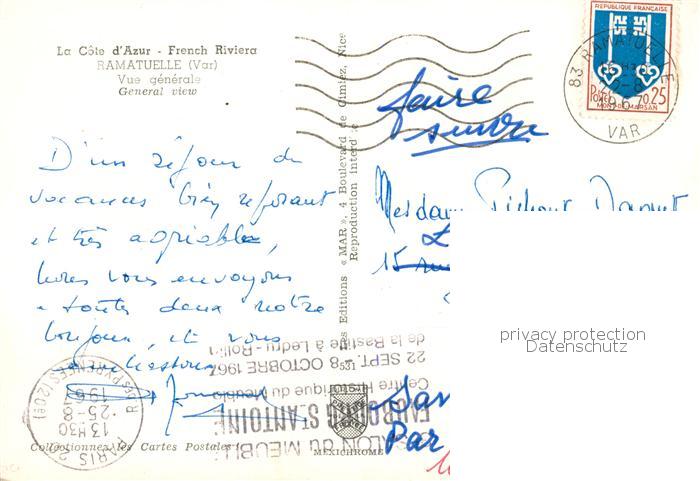 La Côte d'Azur - French Riviera
RAMATUELLE (Var)
Vue générale
General view
D'un séjour de
vacances bien reposant
et très agréable,
nous vous envoyons
à toutes deux notre
bonjour, et vous
Collectionnez les Cartes Postales
Les Editions « MAR », 4 Boulevard de Cimiez, Nice
Reproduction interdite
MEXICHROME
faire
suivre
REPUBLIQUE FRANÇAISE
Postes 0,25
MONT-DE-MARSAN
83 RAMATUELLE
25-8
1967
VAR
Mesdames
15
Par
privacy protection
Datenschutz
SALON du MEUBLE
FAUBOURG ST.ANTOINE
Centre Historique du Meuble
22 SEPT.-8 OCTOBRE 1967
de la Bastille à Ledru-Rollin
PARIS
R. DES PYRENEES (20e)
13H30
25-8
1967